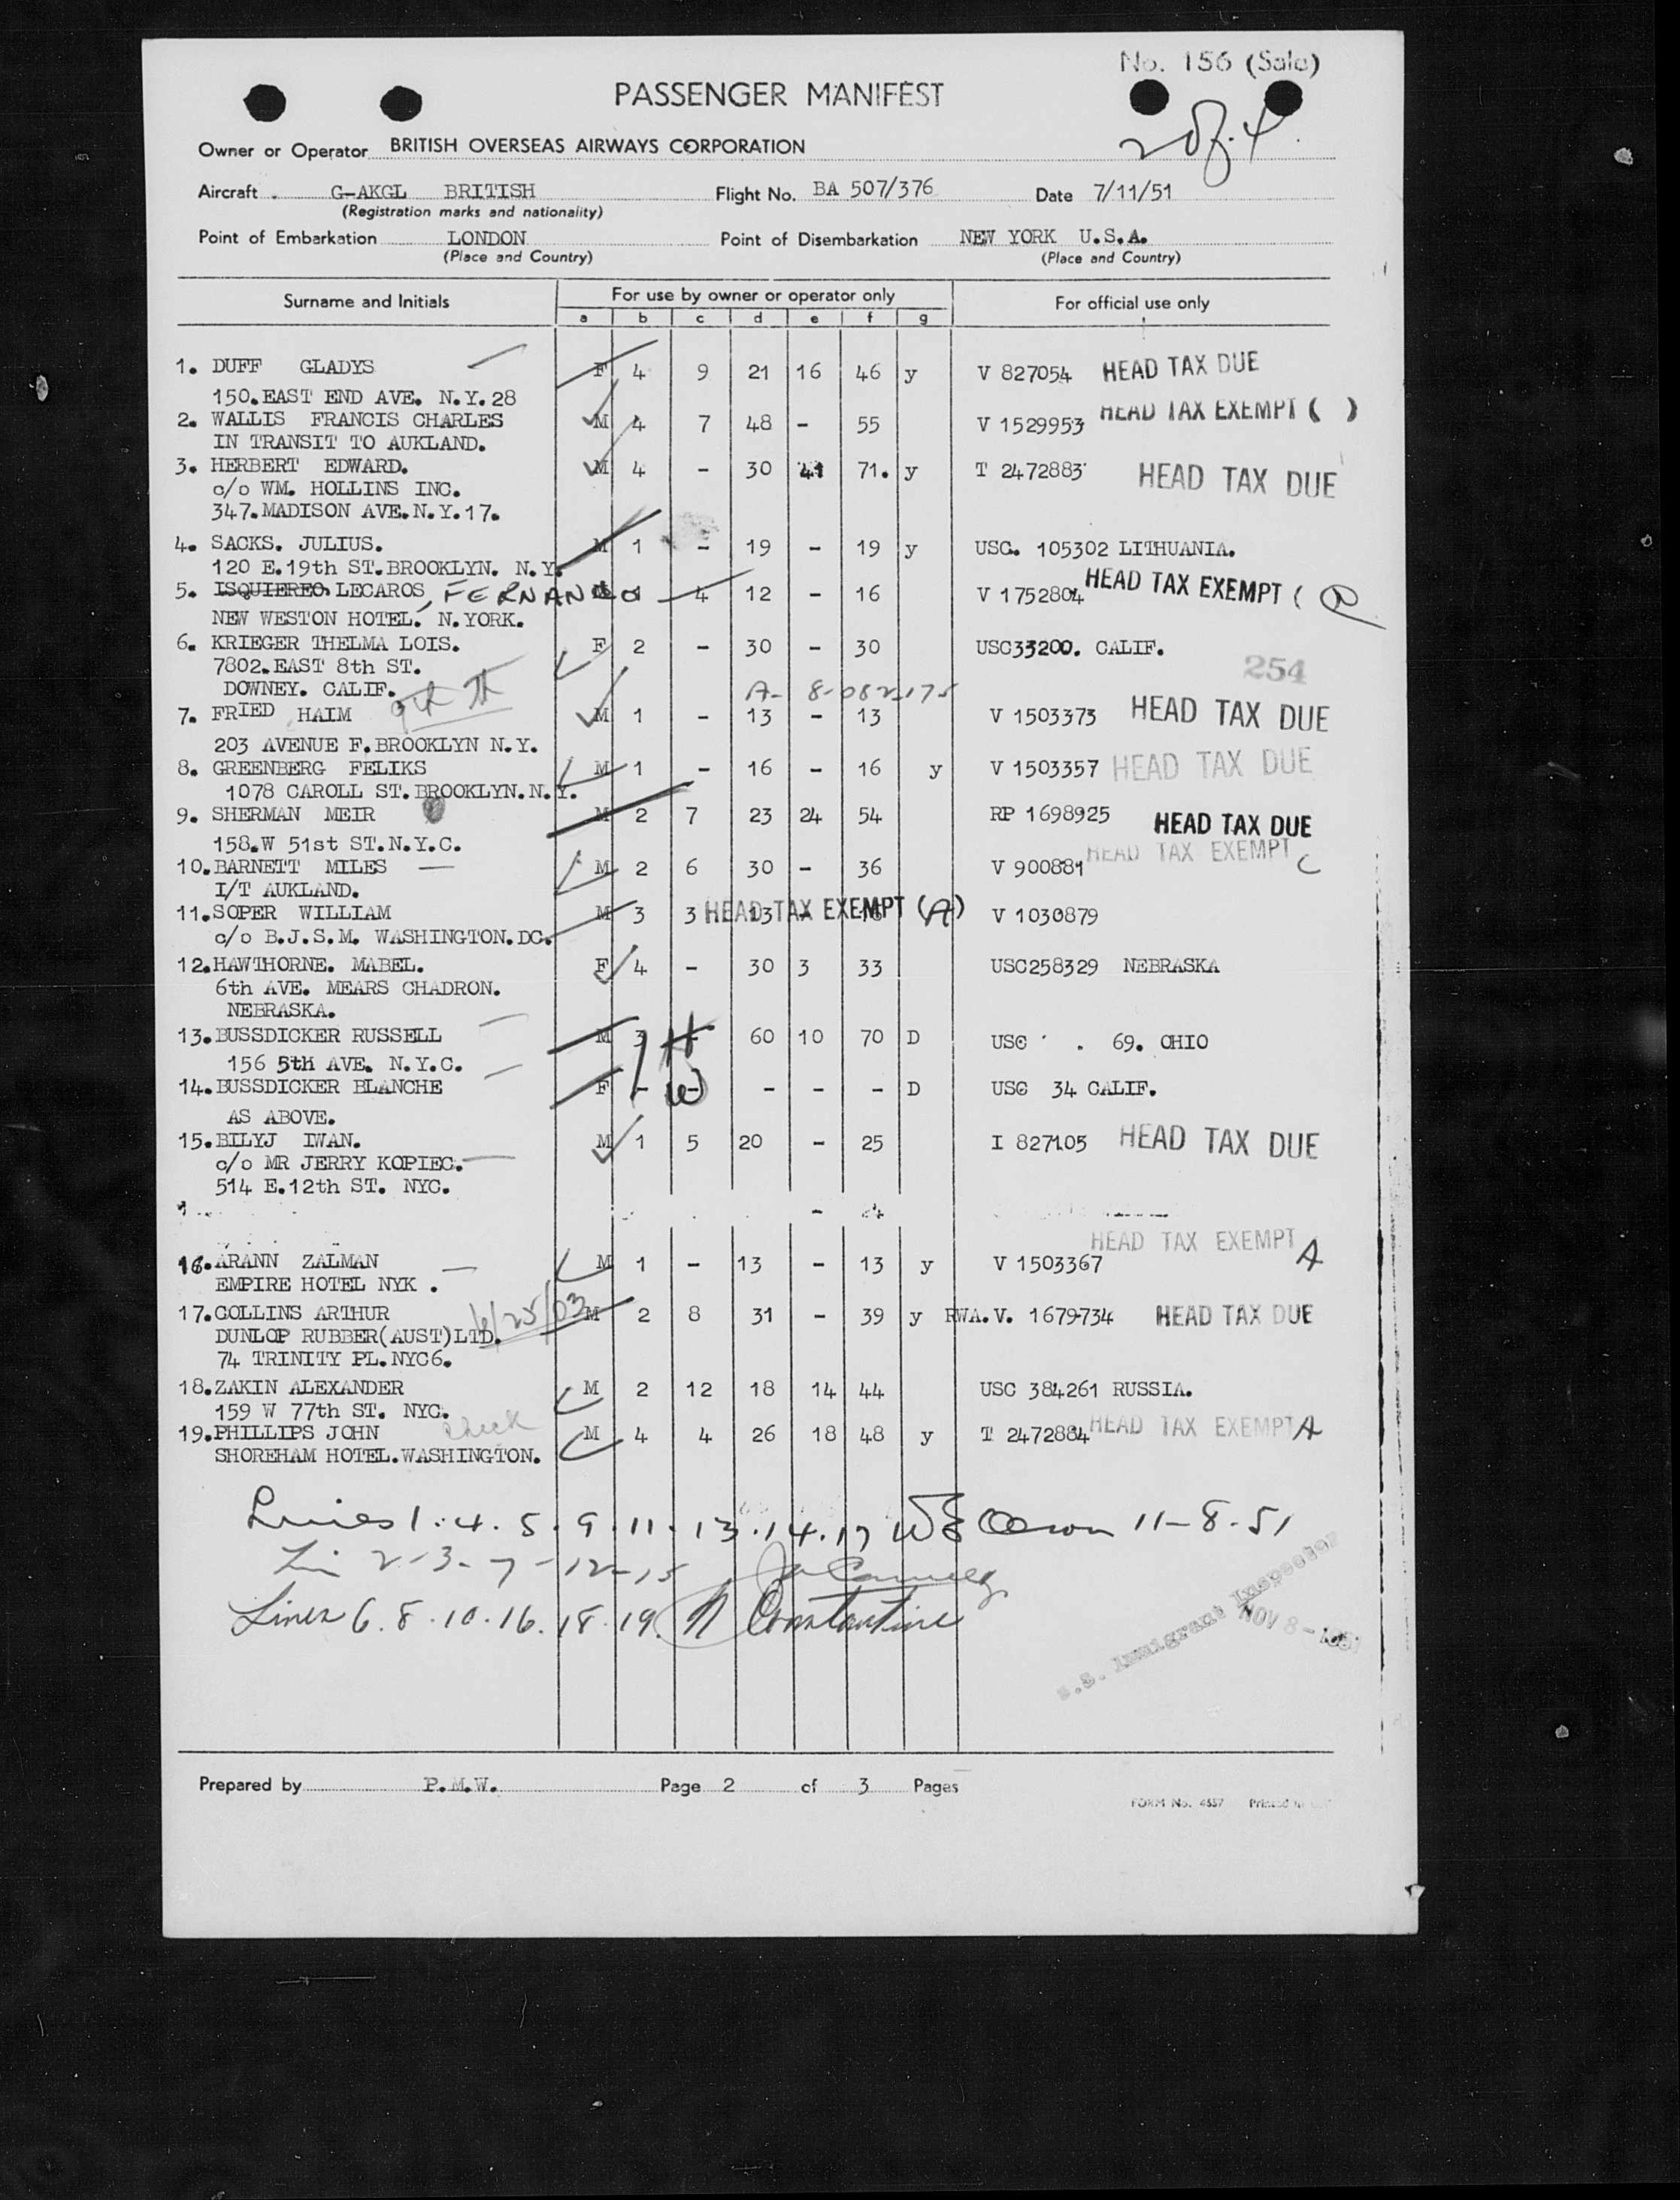 No. 156 (Sale)
PASSENGER MANIFEST
2 of 4
Owner or Operator BRITISH OVERSEAS AIRWAYS CORPORATION
Aircraft G-AKGL BRITISH Flight No. BA 507/376 Date 7/11/51
(Registration marks and nationality)
Point of Embarkation LONDON Point of Disembarkation NEW YORK U.S.A.
(Place and Country) (Place and Country)
Surname and Initials For use by owner or operator only For official use only
a b c d e f g
1. DUFF GLADYS F 4 9 21 16 46 y V 827054 HEAD TAX DUE
150.EAST END AVE. N.Y.28
2. WALLIS FRANCIS CHARLES M 4 7 48 - 55 V 1529953 HEAD TAX EXEMPT ( )
IN TRANSIT TO AUKLAND.
3. HERBERT EDWARD. M 4 - 30 41 71. y T 2472883 HEAD TAX DUE
c/o WM. HOLLINS INC.
347.MADISON AVE.N.Y.17.
4. SACKS. JULIUS. M 1 - 19 - 19 y USC. 105302 LITHUANIA.
120 E.19th ST.BROOKLYN. N.Y.
5. ISQUIEREO. LECAROS, FERNANDO 4 12 - 16 V 1752804 HEAD TAX EXEMPT (
NEW WESTON HOTEL. N.YORK.
6. KRIEGER THELMA LOIS. F 2 - 30 - 30 USC33200. CALIF.
7802.EAST 8th ST.
254
DOWNEY. CALIF.
A- 8-082175
7. FRIED HAIM M 1 - 13 - 13 V 1503373 HEAD TAX DUE
203 AVENUE F.BROOKLYN N.Y.
8. GREENBERG FELIKS M 1 - 16 - 16 y V 1503357 HEAD TAX DUE
1078 CAROLL ST.BROOKLYN.N.Y.
9. SHERMAN MEIR M 2 7 23 24 54 RP 1698925 HEAD TAX DUE
158.W 51st ST.N.Y.C.
10.BARNETT MILES M 2 6 30 - 36 V 900881 HEAD TAX EXEMPT C
I/T AUKLAND.
11.SOPER WILLIAM M 3 3 13 - 16 HEAD TAX EXEMPT (A) V 1030879
c/o B.J.S.M. WASHINGTON.DC.
12.HAWTHORNE. MABEL. F 4 - 30 3 33 USC258329 NEBRASKA
6th AVE. MEARS CHADRON.
NEBRASKA.
13.BUSSDICKER RUSSELL M 3 H 60 10 70 D USC . 69. OHIO
156 5th AVE. N.Y.C.
14.BUSSDICKER BLANCHE F - W - - - D USC 34 CALIF.
AS ABOVE.
15.BILYJ IWAN. M 1 5 20 - 25 I 827105 HEAD TAX DUE
c/o MR JERRY KOPIEC.
514 E.12th ST. NYC.
HEAD TAX EXEMPT A
16.ARANN ZALMAN M 1 - 13 - 13 y V 1503367
EMPIRE HOTEL NYK .
17.COLLINS ARTHUR 6/25/03 M 2 8 31 - 39 y RWA.V. 1679734 HEAD TAX DUE
DUNLOP RUBBER(AUST)LTD.
74 TRINITY PL.NYC6.
18.ZAKIN ALEXANDER M 2 12 18 14 44 USC 384261 RUSSIA.
159 W 77th ST. NYC.
check
19.PHILLIPS JOHN M 4 4 26 18 48 y T 2472884 HEAD TAX EXEMPT A
SHOREHAM HOTEL.WASHINGTON.
Lines 1.4.5.9.11.13.14.17 11-8-51
Li 2-3-7-12-15
Lines 6.8.10.16.18.19. Constantine
Immigrant Inspector
NOV 8-1951
Prepared by P.M.W. Page 2 of 3 Pages
FORM No. 4557